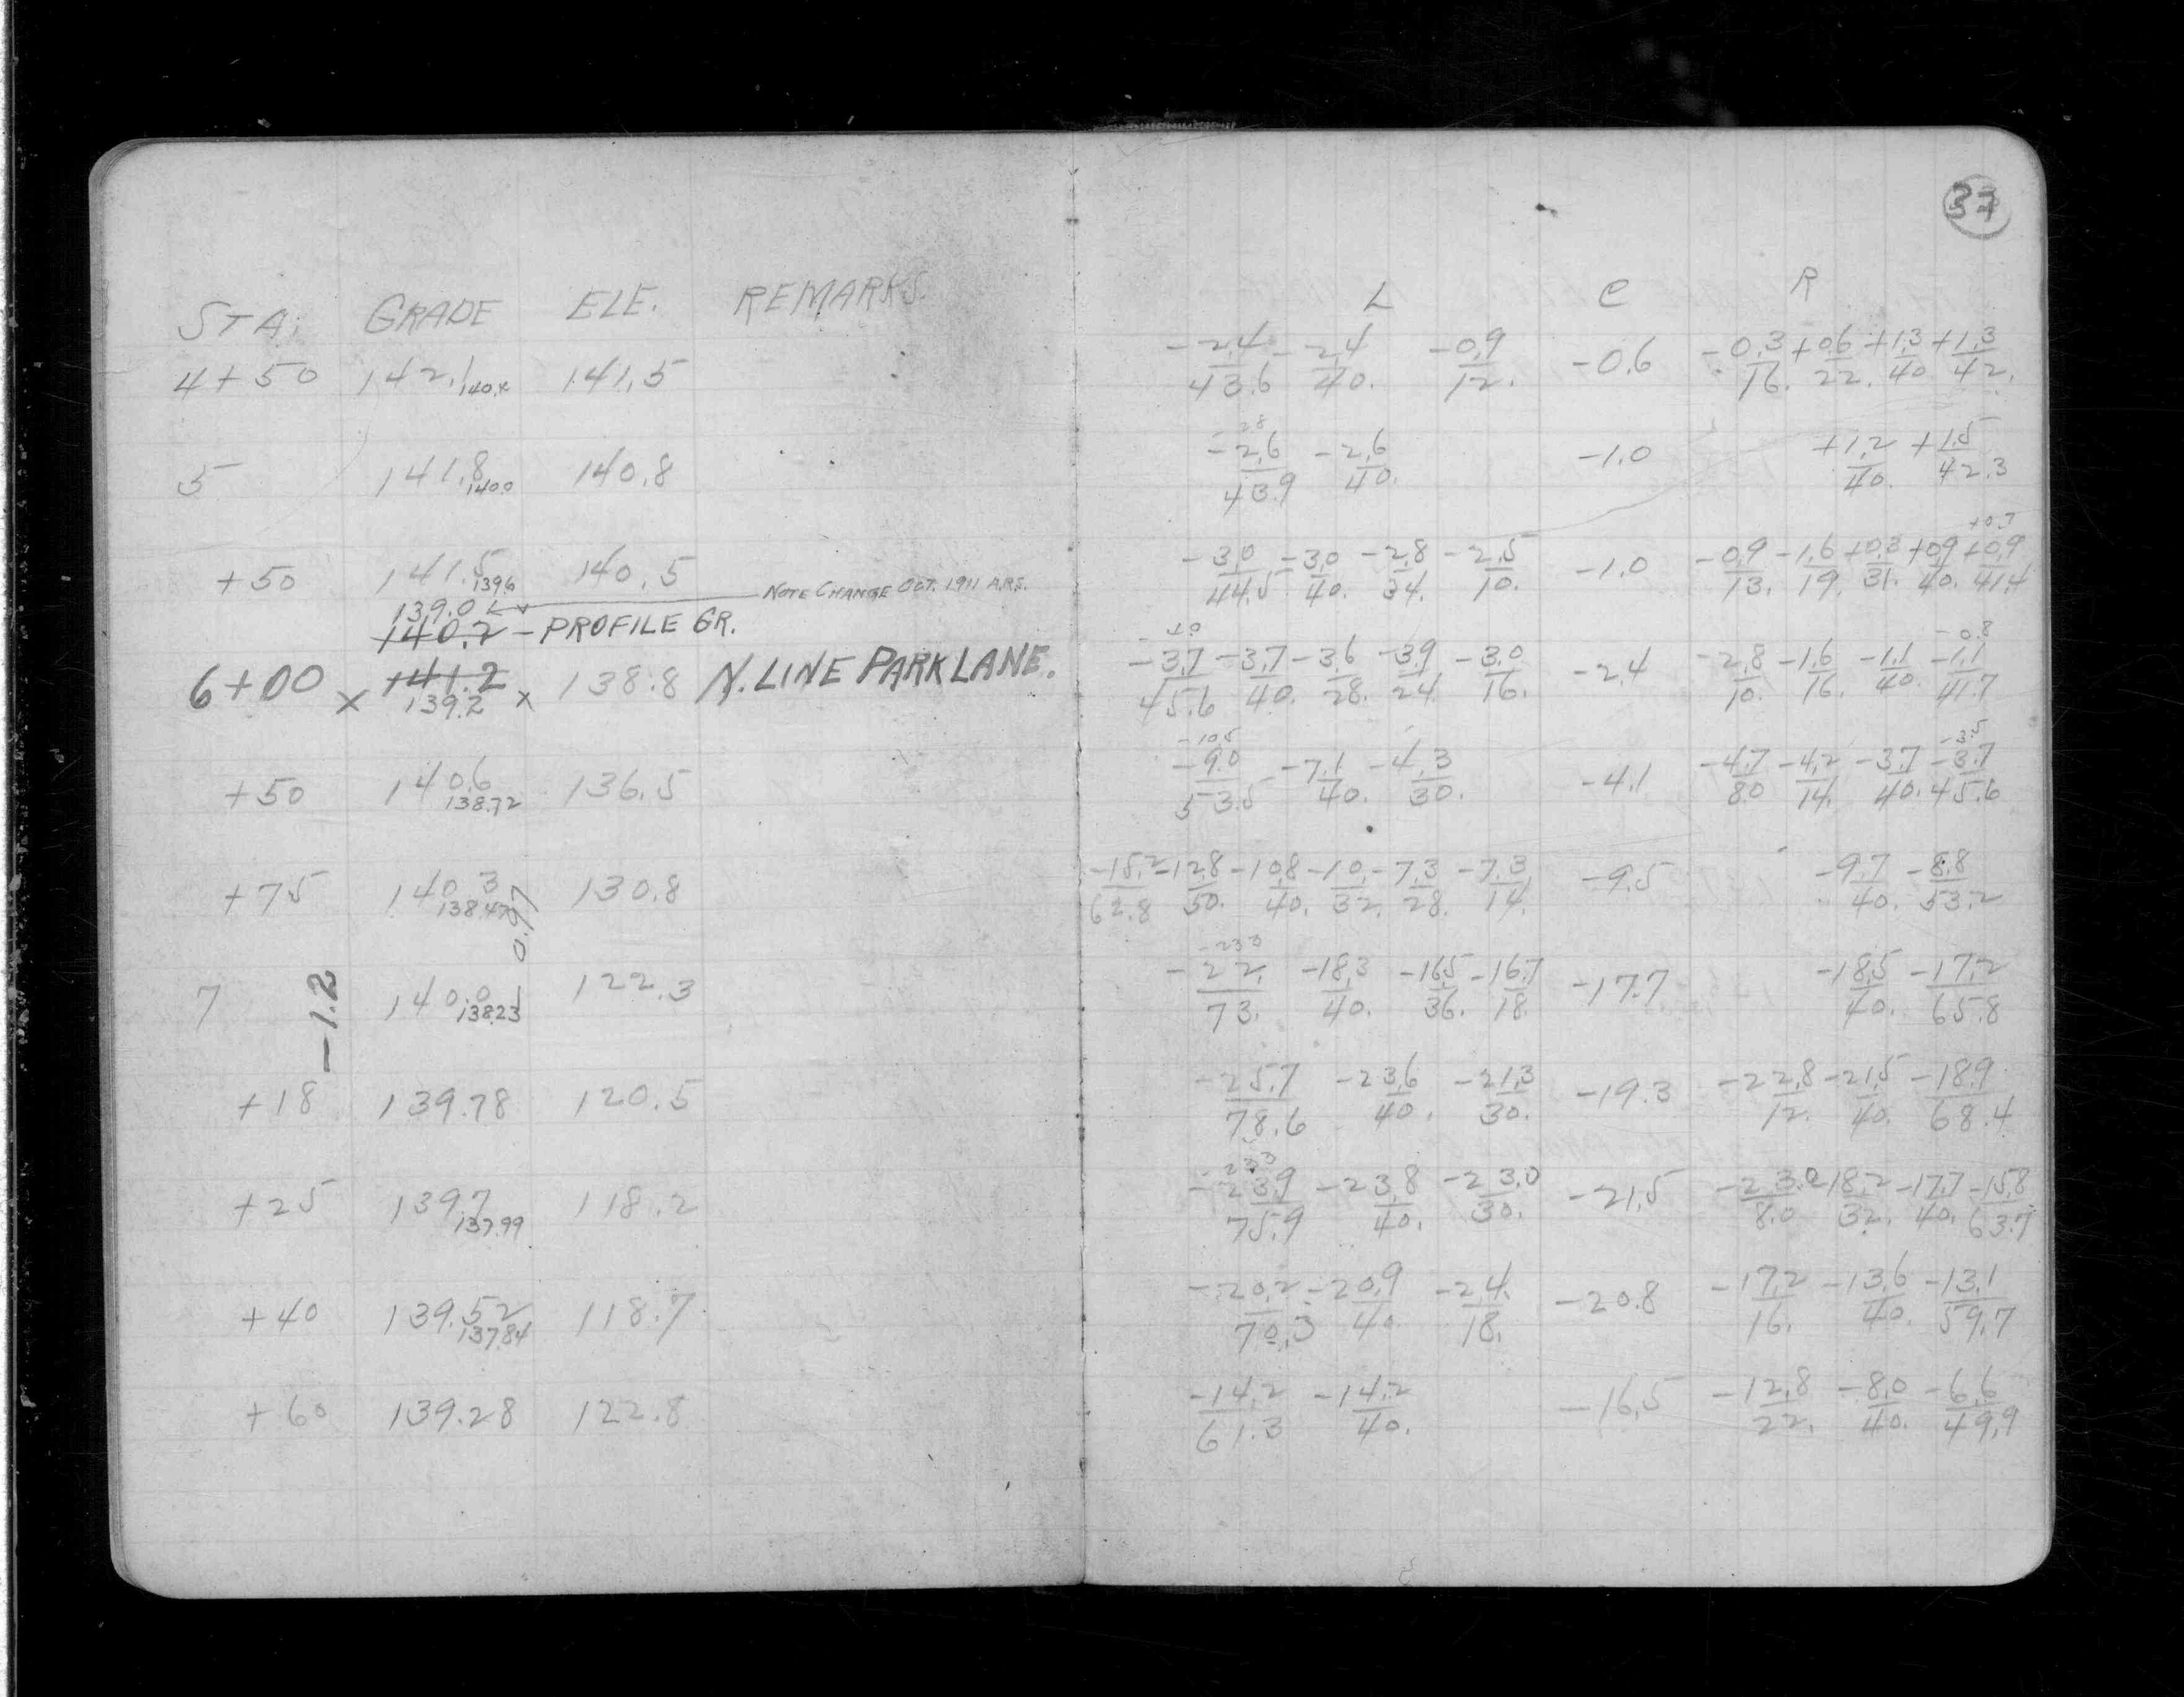 37
STA. GRADE ELE. REMARKS. L C R
4+50 142.1 140.4 141.5 -2.4/43.6 -2.4/40. -0.9/12. -0.6 -0.3/16. +0.6/22. +1.3/40 +1.3/42.
5 141.8 140.0 140.8 -2.8 -2.6/43.9 -2.6/40. -1.0 +1.2/40. +1.5/42.3
+50 141.5 139.6 140.5 -3.0/44.5 -3.0/40. -2.8/34. -2.5/10. -1.0 -0.9/13. -1.6/19. +0.3/31. +0.9/40. +0.7 +0.9/41.4
NOTE CHANGE OCT. 1911 A.R.S.
139.0
140.2 - PROFILE GR.
6+00 x 141.2 139.2 x 138.8 N. LINE PARK LANE. -3.7/45.6 -3.7/40. -3.6/28. -3.9/24. -3.0/16. -2.4 -2.8/10. -1.6/16. -1.1/40. -0.8 -1.1/41.7
+50 140.6 138.72 136.5 -10.5 -9.0/53.5 -7.1/40. -4.3/30. -4.1 -4.7/80 -4.2/14. -3.7/40. -3.5 -3.7/45.6
+75 140.3 138.47 130.8 -15.2/62.8 -12.8/50. -10.8/40. -10./32. -7.3/28. -7.3/14. -9.5 -9.7/40. -8.8/53.2
0.97
-1.2
7 140.0 138.23 122.3 -23.3 -22./73. -18.3/40. -16.5/36. -16.7/18. -17.7 -18.5/40. -17.2/65.8
+18 139.78 120.5 -25.7/78.6 -23.6/40. -21.3/30. -19.3 -22.8/12. -21.5/40. -18.9/68.4
+25 139.7 137.99 118.2 -23.3 -23.9/75.9 -23.8/40. -23.0/30. -21.5 -23.0/8.0 -18.2/32. -17.7/40. -15.8/63.7
+40 139.52 137.84 118.7 -20.2/70.3 -20.9/40. -24./18. -20.8 -17.2/16. -13.6/40. -13.1/59.7
+60 139.28 122.8 -14.2/61.3 -14.2/40. -16.5 -12.8/22. -8.0/40. -6.6/49.9